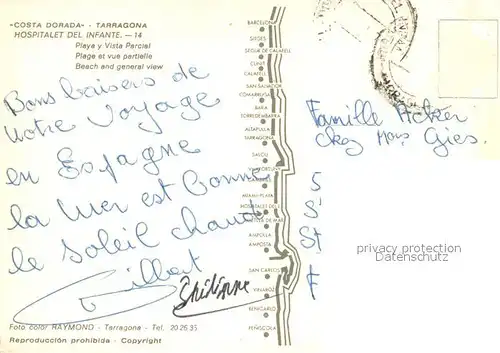 «COSTA DORADA» - TARRAGONA
HOSPITALET DEL INFANTE. - 14
Playa y Vista Parcial
Plage et vue partielle
Beach and general view
Bons baisers de
notre voyage
en Espagne
la mer est bonne
le soleil chaud
Gilbert
BARCELONA
SITGES
CUNIT
CALAFELL
SAN SALVADOR
COMARRUGA
BARA
TORREDEMBARRA
ALTAFULLA
TARRAGONA
SALOU
MIAMI-PLAYA
HOSPITALET DEL I.
AMETLLA DE MAR
AMPOLLA
AMPOSTA
SAN CARLOS
VINAROZ
BENICARLO
PEÑISCOLA
Famille Acker
chez Mons Gies.
5
S
St
F
privacy protection
Datenschutz
Foto color RAYMOND - Tarragona - Tel. 20 25 35
Reproducción prohibida - Copyright